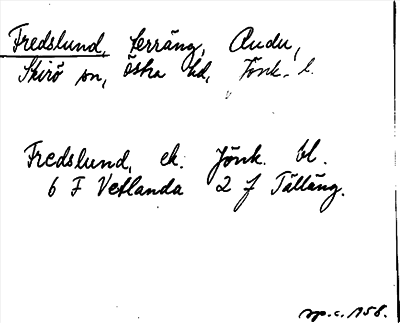 Fredslund, terräng, Audu,
Skirö sn, Östra hd, Jönk. l.
Fredslund, ek. Jönk. bl.
6 F Vetlanda 2 f Tälläng.
sp.c. 158.